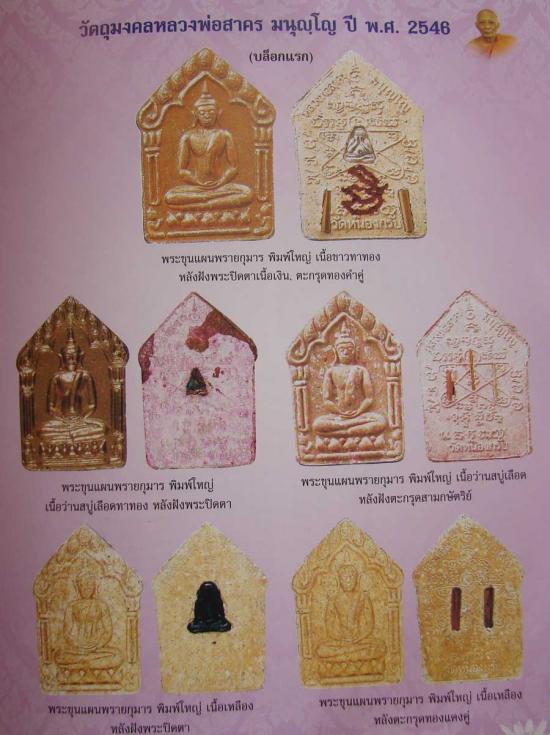 วัตถุมงคลหลวงพ่อสาคร มนุญฺโญ ปี พ.ศ. 2546
(บล็อกแรก)
วัดหนองกรับ
พระขุนแผนพรายกุมาร พิมพ์ใหญ่ เนื้อขาวทาทอง
หลังฝังพระปิดตาเนื้อเงิน, ตะกรุดทองคำคู่
วัดหนองกรับ
พระขุนแผนพรายกุมาร พิมพ์ใหญ่
เนื้อว่านสบู่เลือดทาทอง หลังฝังพระปิดตา
พระขุนแผนพรายกุมาร พิมพ์ใหญ่ เนื้อว่านสบู่เลือด
หลังฝังตะกรุดสามกษัตริย์
พระขุนแผนพรายกุมาร พิมพ์ใหญ่ เนื้อเหลือง
หลังฝังพระปิดตา
พระขุนแผนพรายกุมาร พิมพ์ใหญ่ เนื้อเหลือง
หลังตะกรุดทองแดงคู่